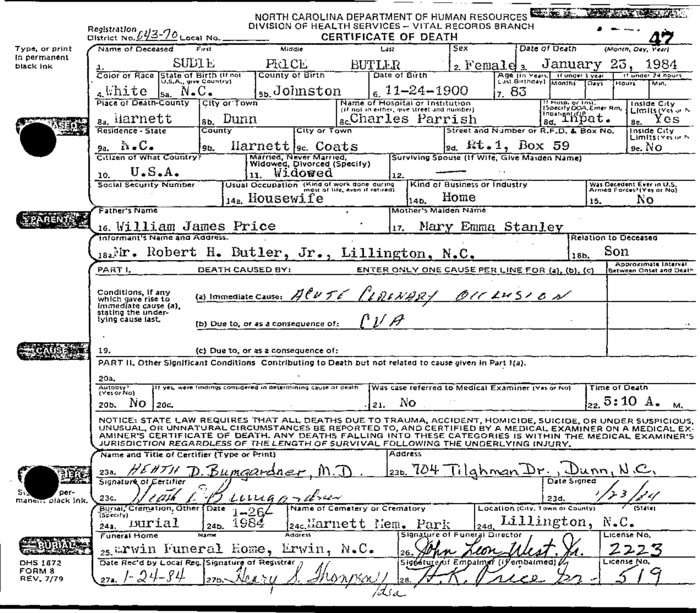 NORTH CAROLINA DEPARTMENT OF HUMAN RESOURCES
DIVISION OF HEALTH SERVICES – VITAL RECORDS BRANCH
CERTIFICATE OF DEATH
Registration District No. 643-70 Local No. 47
Type, or print in permanent black ink
Name of Deceased First Middle Last Sex Date of Death (Month, Day, Year)
1. SUDIE PRICE BUTLER 2. Female 3. January 23, 1984
Color or Race State of Birth (If not U.S.A., give Country) County of Birth Date of Birth Age (In Years, Last Birthday) If under 1 year Months Days If under 24 hours Hours Min.
4. White 5a. N.C. 5b. Johnston 6. 11-24-1900 7. 83
Place of Death-County City or Town Name of Hospital or Institution (If not in either, give street and number) If Hosp. or Inst. (Specify DOA, Emer Rm, Inpatient) Inside City Limits (Yes or No)
8a. Harnett 8b. Dunn 8c. Charles Parrish 8d. Inpat. 8e. Yes
Residence - State County City or Town Street and Number or R.F.D. & Box No. Inside City Limits (Yes or No)
9a. N.C. 9b. Harnett 9c. Coats 9d. Rt.1, Box 59 9e. No
Citizen of What Country? Married, Never Married, Widowed, Divorced (Specify) Surviving Spouse (If Wife, Give Maiden Name)
10. U.S.A. 11. Widowed 12. —
Social Security Number Usual Occupation (Kind of work done during most of life, even if retired) Kind of Business or Industry Was Decedent Ever in U.S. Armed Forces? (Yes or No)
14a. Housewife 14b. Home 15. No
PARENTS
Father's Name Mother's Maiden Name
16. William James Price 17. Mary Emma Stanley
Informant's Name and Address Relation to Deceased
18a. Mr. Robert H. Butler, Jr., Lillington, N.C. 18b. Son
PART I. DEATH CAUSED BY: ENTER ONLY ONE CAUSE PER LINE FOR (a), (b), (c) Approximate Interval Between Onset and Death
Conditions, if any which gave rise to immediate cause (a), stating the underlying cause last.
(a) Immediate Cause: ACUTE CORONARY OCCLUSION
(b) Due to, or as a consequence of: CVA
CAUSE
19. (c) Due to, or as a consequence of:
PART II. Other Significant Conditions Contributing to Death but not related to cause given in Part I(a).
20a.
Autopsy? (Yes or No) If yes, were findings considered in determining cause of death Was case referred to Medical Examiner (Yes or No) Time of Death
20b. No 20c. 21. No 22. 5:10 A. M.
NOTICE: STATE LAW REQUIRES THAT ALL DEATHS DUE TO TRAUMA, ACCIDENT, HOMICIDE, SUICIDE, OR UNDER SUSPICIOUS,
UNUSUAL, OR UNNATURAL CIRCUMSTANCES BE REPORTED TO, AND CERTIFIED BY A MEDICAL EXAMINER ON A MEDICAL EX-
AMINER'S CERTIFICATE OF DEATH. ANY DEATHS FALLING INTO THESE CATEGORIES IS WITHIN THE MEDICAL EXAMINER'S
JURISDICTION REGARDLESS OF THE LENGTH OF SURVIVAL FOLLOWING THE UNDERLYING INJURY.
Name and Title of Certifier (Type or Print) Address
23a. HEATH D. Bumgardner, M.D. 23b. 704 Tilghman Dr., Dunn, N.C.
Signature of Certifier Date Signed
23c. Heath D Bumgardner 23d. 1/23/84
Burial, Cremation, Other (Specify) Date Name of Cemetery or Crematory Location (City, Town or County) (State)
24a. Burial 24b. 1-26-1984 24c. Harnett Mem. Park 24d. Lillington, N.C.
BURIAL
Funeral Home Name Address Signature of Funeral Director License No.
25. Erwin Funeral Home, Erwin, N.C. 26. John Leon West, Jr. 2223
DHS 1872
FORM 8
REV. 7/79
Date Rec'd by Local Reg. Signature of Registrar Signature of Embalmer (if embalmed) License No.
27a. 1-24-84 27b. Henry S. Thompson 28. H.K. Price Jr. 519